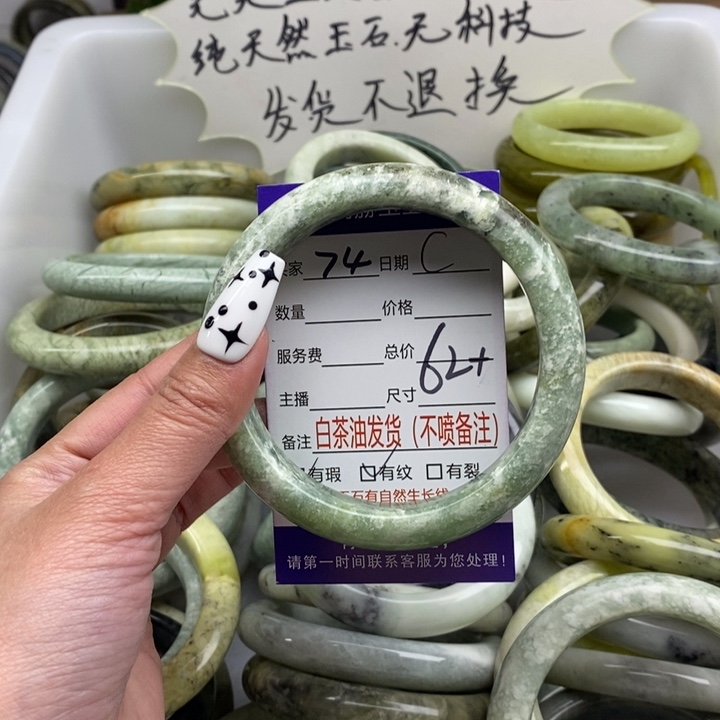 纯天然玉石.无科技
发货不退换
家 74 日期 C
数量 价格
服务费 总价
62+
主播 尺寸
备注 白茶油发货（不喷备注）
有瑕 有纹 有裂
石有自然生长线
请第一时间联系客服为您处理！